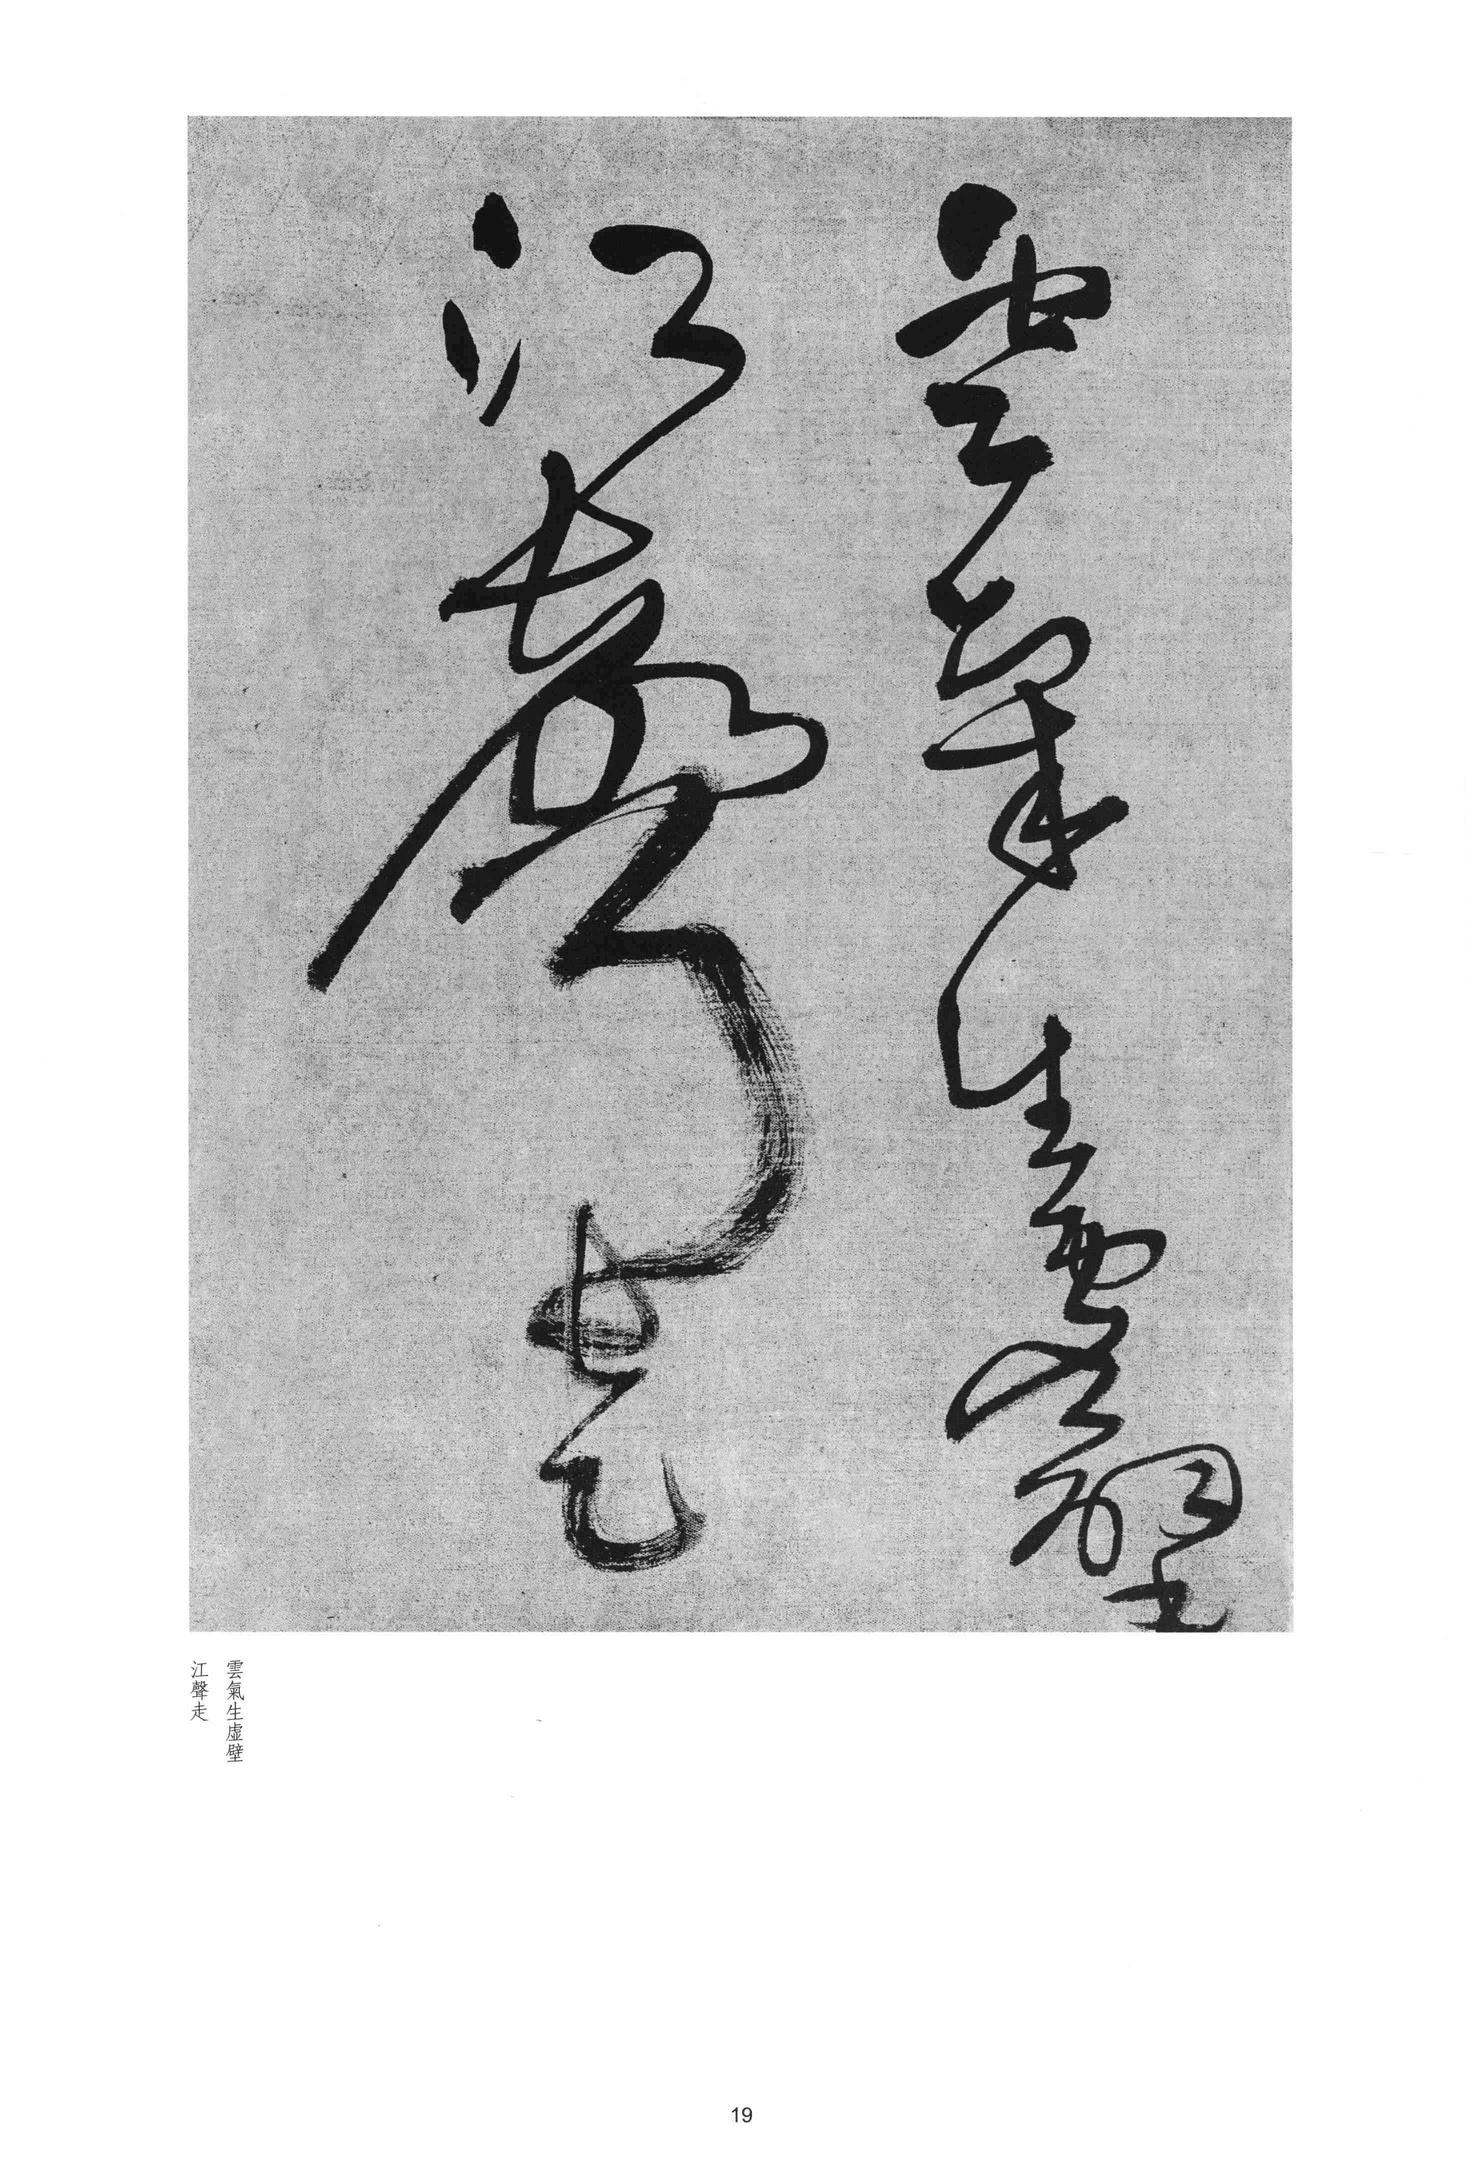 雲氣生虛壁
江聲走
雲氣生虛壁
江聲走
19